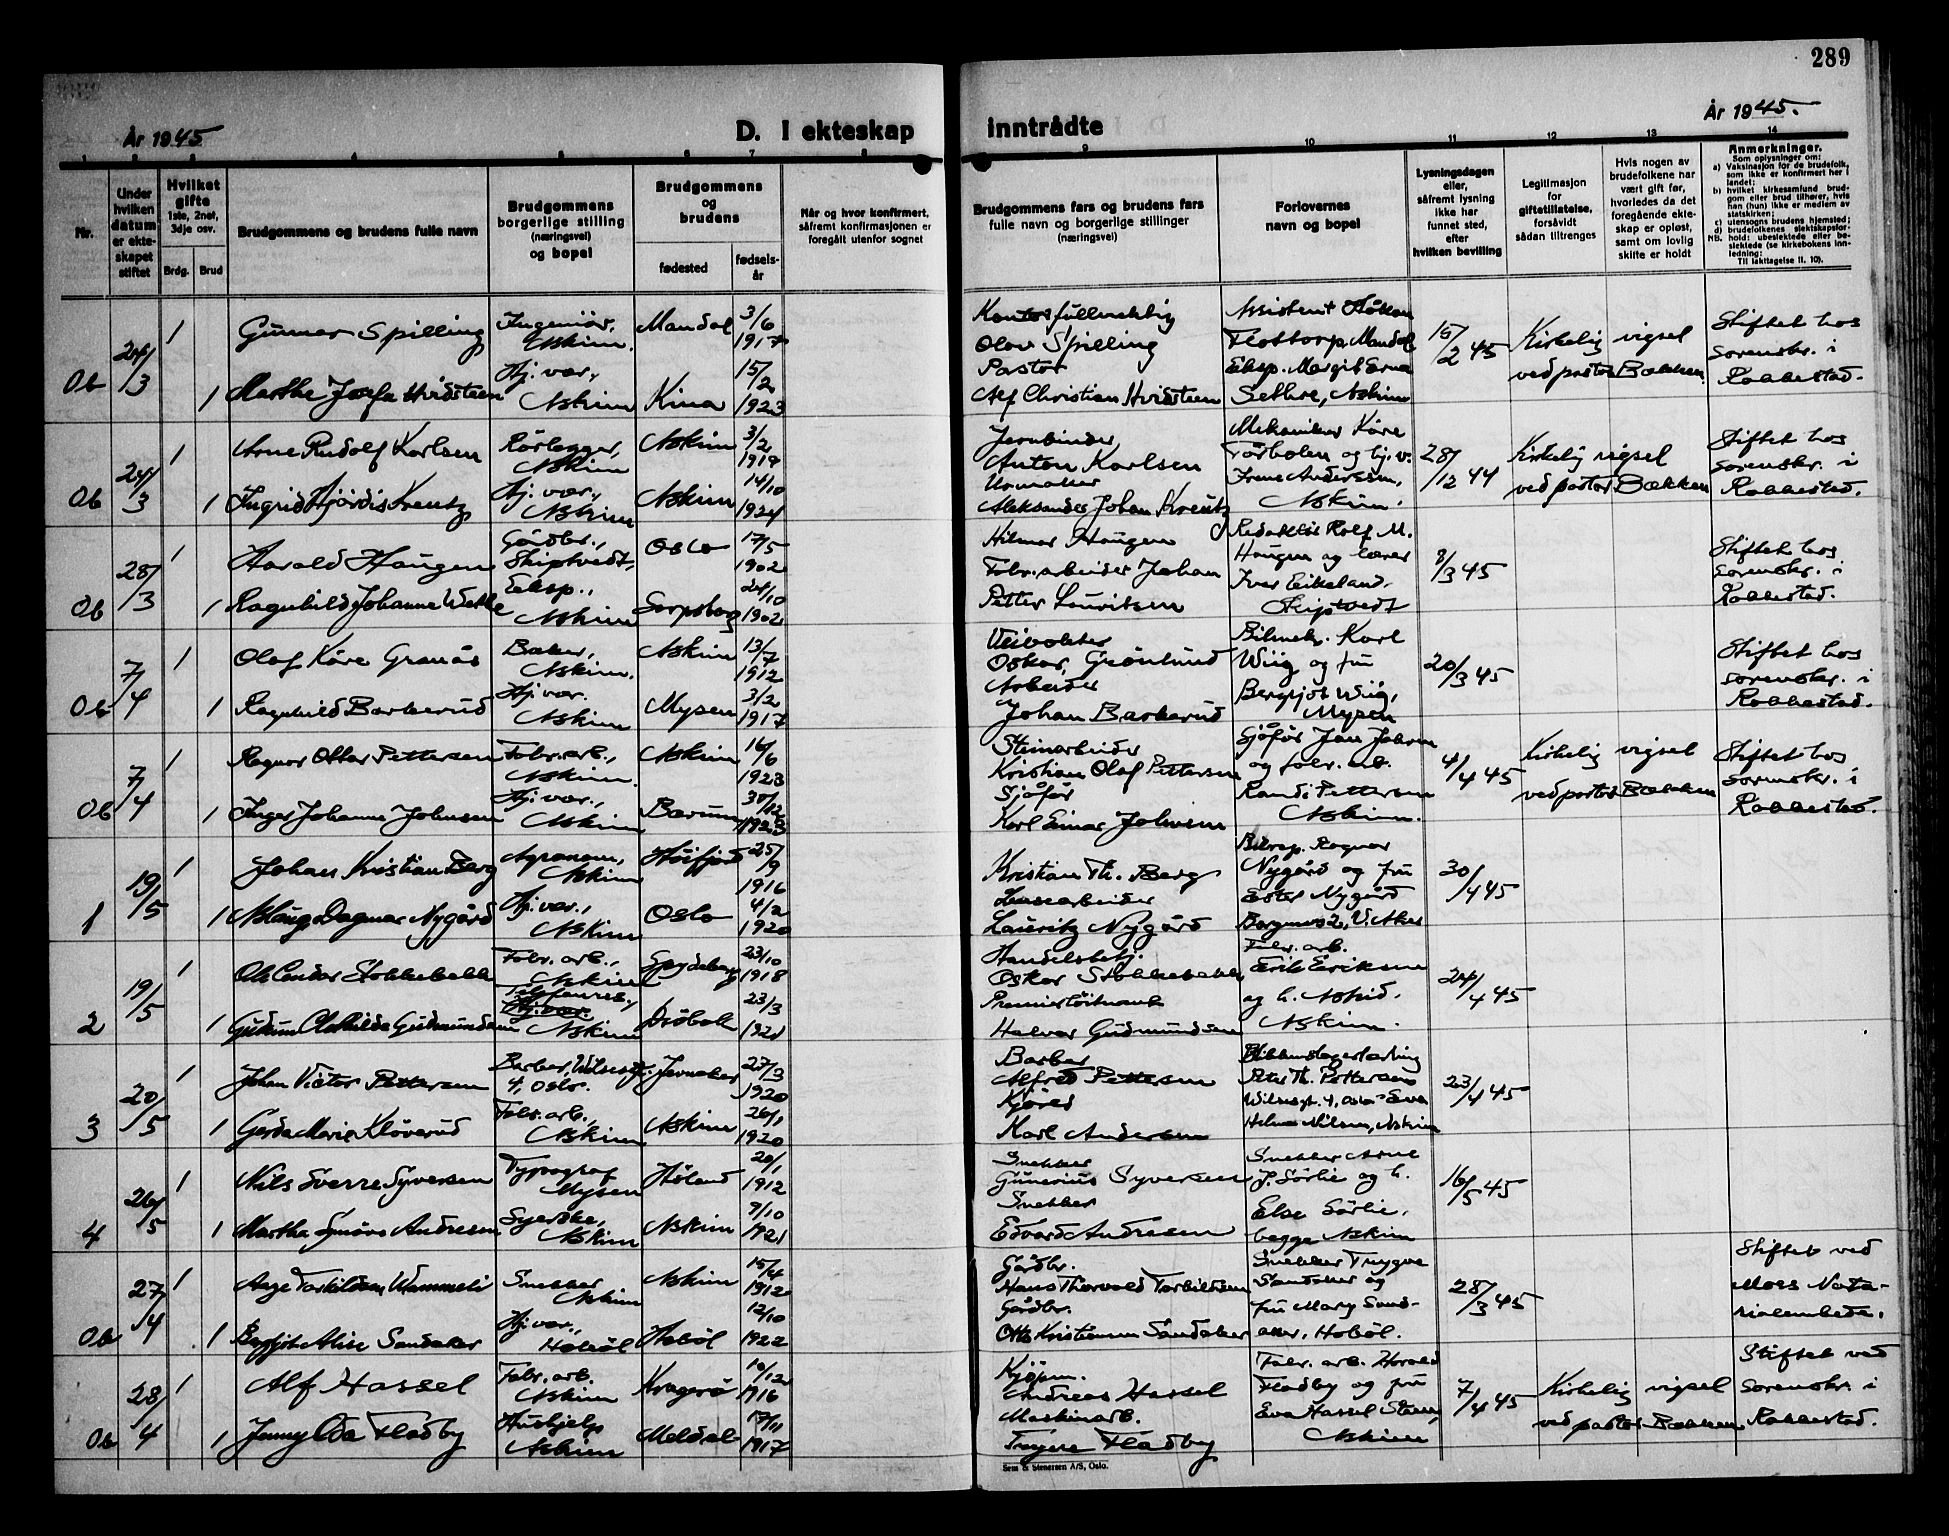 289
År 1945
D. I ekteskap inntrådte
År 1945.
1 2 3 4 5 6 7 8 9 10 11 12 13 14
Nr.
Under hvilken datum er ekteskapet stiftet
Hvilket gifte
1ste, 2net, 3dje osv.
Brdg. Brud
Brudgommens og brudens fulle navn
Brudgommens borgerlige stilling (næringsvei) og bopel
Brudgommens og brudens
fødested
fødselsår
Når og hvor konfirmert, såfremt konfirmasjonen er foregått utenfor sognet
Brudgommens fars og brudens fars fulle navn og borgerlige stillinger (næringsvei)
Forlovernes navn og bopel
Lysningsdagen eller, såfremt lysning ikke har funnet sted, efter hvilken bevilling
Legitimasjon for giftetillatelse, forsåvidt sådan tiltrenges
Hvis nogen av brudefolkene har vært gift før, hvorledes da det foregående ekteskap er opløst, samt om lovlig skifte er holdt
Anmerkninger.
Som oplysninger om:
a) Vaksinasjon for de brudefolk, som ikke er konfirmert her i landet;
b) hvilket kirkesamfund brudgom eller brud tilhører, hvis han (hun) ikke er medlem av statskirken;
c) utensogns brudens hjemsted;
d) brudefolkenes slektskapsforhold: ubeslektede eller beslektede (se kirkebokens innledning:
NB. Til iakttagelse II. 10).
Ob 24/3 1 Gunnar Spilling Ingeniør, Askim. Mandal 3/6 1917 Kontorfullmektig Olav Spilling Assistent Håkon Flottorp, Mandal 15/2 45 Kirkelig vigsel ved pastor Bakken. Stiftet hos sorenskr. i Rakkestad.
1 Marthe Josefa Hvidsteen Hj. vær., Askim Kina 15/2 1923 Pastor Alf Christian Hvidsteen Eksp. Margit Erna Sethre, Askim
Ob 24/3 1 Arne Rudolf Karlsen Rørlegger, Askim Askim 3/2 1919 Jernbinder, Anton Karlsen Mekaniker Kåre og hj. v. 28/12 44 Kirkelig vigsel ved pastor Bakken Stiftet hos sorenskr. i Rakkestad.
1 Ingrid Hjördis Kreutz Hj. vær., Askim Askim 14/10 1924 Urmaker Aleksander Johan Kreutz Irene Andersen, Askim.
Ob 28/3 1 Harald Haugen Gårdbr., Skiptvedt, Oslo 17/5 1902 Hilmar Haugen Redaktør Rolf M. Haugen og lærer 8/3 45 Stiftet hos sorenskr. i Rakkestad.
1 Ragnhild Johanne Eksp., Askim Sarpsborg 24/10 1902 Fabr. arbeider Johan Petter Lauritsen Iver Eikeland, Skiptvedt
Ob 7/4 1 Olaf Kåre Granås Baker, Askim. Askim 13/7 1912 Veivokter Oskar Grønlund Bilmek. Karl Wiig og fru 20/3 45 Stiftet hos sorenskr. i Rakkestad.
1 Ragnhild Barkerud Hj. vær. Askim Mysen 3/2 1917 Arbeider Johan Barkerud Bergljot Wiig, Mysen
Ob 7/4 1 Ragnar Ottar Pettersen Fabr. arb., Askim. Askim 16/6 1923 Stenarbeider Kristian Olaf Pettersen Sjåfør Jan Johnsen og fabr. arb. 4/4 45 Kirkelig vigsel ved pastor Bakken Stiftet hos sorenskr. i Rakkestad.
1 Inger Johanne Johnsen Hj. vær., Askim Bærum 30/12 1923 Sjåfør Karl Einar Johnsen Randi Pettersen Askim.
1 19/5 1 Johan Kristian Berg Agronom, Askim 25/9 1916 Kristian Th. Berg Ragnar Nygård og fru 30/4 45
1 Aslaug Dagmar Nygård Hj. vær., Askim Oslo 4/2 1920 Lauritz Nygård Ester Nygård V. Aker
2 19/5 1 Stokkebekk Fabr. arb., Askim Spydeberg 23/10 1918 Handelsbetj. Oskar Stokkebekk Fabr. arb. Erik Eriksen 24/4 45
1 Gudrun Clothilda Gudmundsen Askim Drøbak 23/3 1921 Premierløitnant Halvar Gudmundsen og h. Askim.
3 20/5 1 Johan Victor Pettersen Barber, 4, Oslo. Jevnaker 27/3 1920 Barber Alfred Pettersen Blikkenslagerlærling Peter Th. Pettersen 23/4 45
1 Gerda Marie Kløverud Fabr. arb., Askim Askim 26/1 1920 Kjørek Karl Andersen 4, Oslo Eva Nilsen, Askim
4 26/5 1 Nils Sverre Syversen Typograf Mysen Høland 20/1 1912 Snekker Gunerius Syversen Snekker Arne J. Sørlie og h. 16/5 45
1 Martha Synøve Andresen Syerske, Askim Askim 9/10 1921 Snekker Edvard Andresen Else Sørlie, begge Askim
Ob 27/4 1 Aage Torkildsen Wammeli Snekker Askim Askim 15/4 1912 Gårdbr. Hans Thorvald Torkildsen Snekker Trygve Sandaker og 28/3 45 Stiftet ved Moss Notarialembete.
1 Bergljot Alise Sandaker Hj. vær, Hobøl Hobøl 12/10 1922 Gårdbr. Otto Kristiansen Sandaker fru Mary Sandaker, Hobøl.
Ob 28/4 1 Alf Hassel Fabr. arb. Askim Kragerø 10/12 1916 Kjøpm. Andreas Hassel Fabr. arb. Harald Fladby og fru 7/4 45 Kirkelig vigsel ved pastor Bakken Stiftet ved sorenskr. i Rakkestad.
1 Jenny Oda Fladby Hushjelp Askim Meldal 17/11 1917 Maskinarb. Trygve Fladby Eva Hassel Askim
Sem & Stenersen A/S, Oslo.